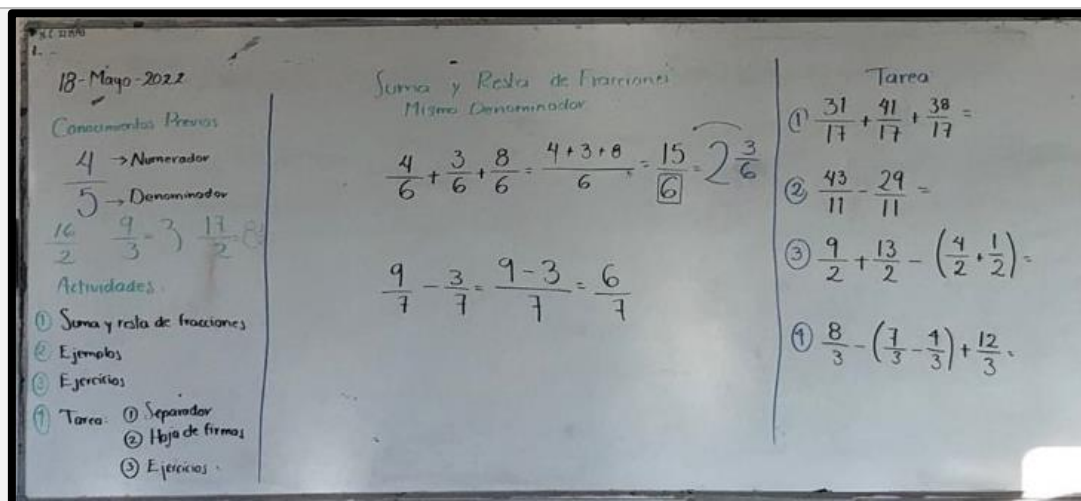 18-Mayo-2022
Conocimientos Previos
4/5 → Numerador
→ Denominador
16/2 9/3 = 3 17/2 = 8
Actividades.
① Suma y resta de fracciones
② Ejemplos
③ Ejercicios
④ Tarea: ① Separador
② Hoja de firmas
③ Ejercicios.
Suma y Resta de Fracciones
Mismo Denominador
4/6 + 3/6 + 8/6 = 4 + 3 + 8/6 = 15/6 = 2 3/6
9/7 - 3/7 = 9 - 3/7 = 6/7
Tarea
① 31/17 + 41/17 + 38/17 =
② 43/11 - 29/11 =
③ 9/2 + 13/2 - (4/2 + 1/2) =
④ 8/3 - (7/3 - 4/3) + 12/3 =